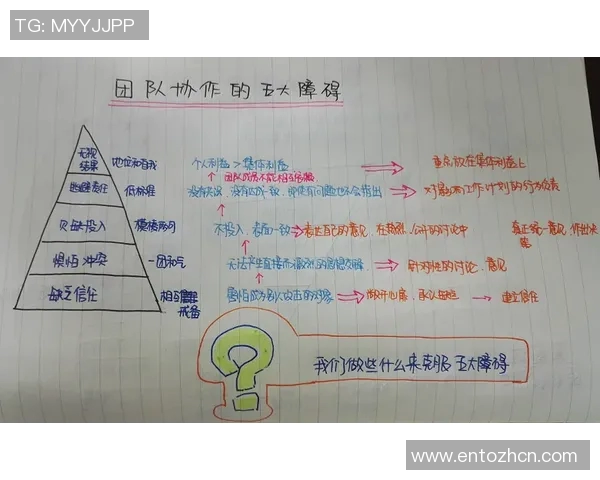 TG: MYYJJPP
团队协作的五大障碍
无视结果 地位和自我 个人利益 > 集体利益 重点放在集体利益上
团队成员不能相互
逃避责任 低标准 没有 没有达成一致, 即使有问题也不会指出 对影响工作计划的行为负责
欠缺投入 模棱两可 不投入, 表面一致 表达自己的意见, 在 公开的讨论中 真正统一意见, 作出决定
惧怕冲突 一团和气 无法产生直接而激烈的思想交锋 针对性的讨论, 意见
缺乏信任 相互戒备 害怕成为别人攻击的对象 敞开心扉, 承认缺点 建立信任
? 我们做些什么来克服五大障碍
www.entozhcn.com